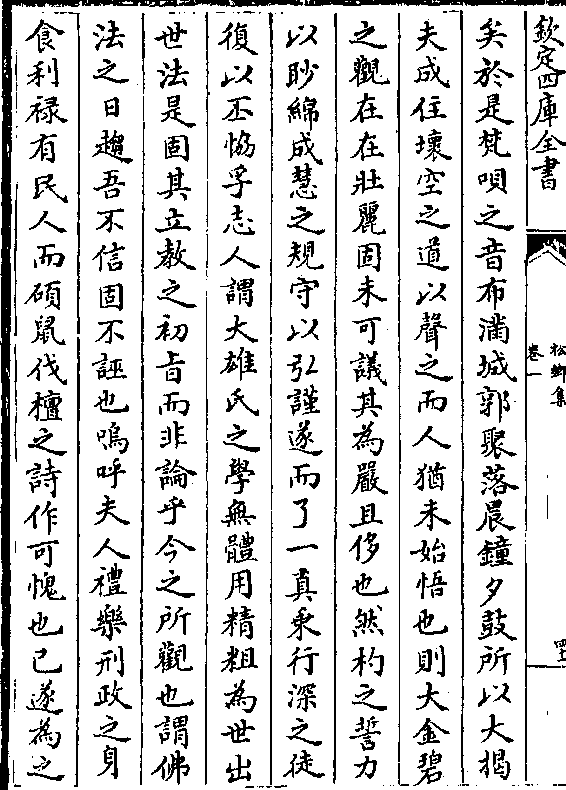 欽定四庫全書
松鄉集
卷一
矣於是梵唄之音布滿城郭聚落晨鐘夕鼓所以大揭
夫成住壞空之道以聲之而人猶未始悟也則大金碧
之觀在在壯麗固未可議其為嚴且侈也然杓之誓力
以眇綿成慧之規守以弘謹遂而了一真乘行深之徒
復以丕恊孚志人謂大雄氏之學無體用精粗為世出
世法是固其立教之初旨而非論乎今之所觀也謂佛
法之日趨吾不信固不誣也嗚呼夫人禮樂刑政之身
食利祿有民人而碩鼠伐檀之詩作可愧也已遂為之